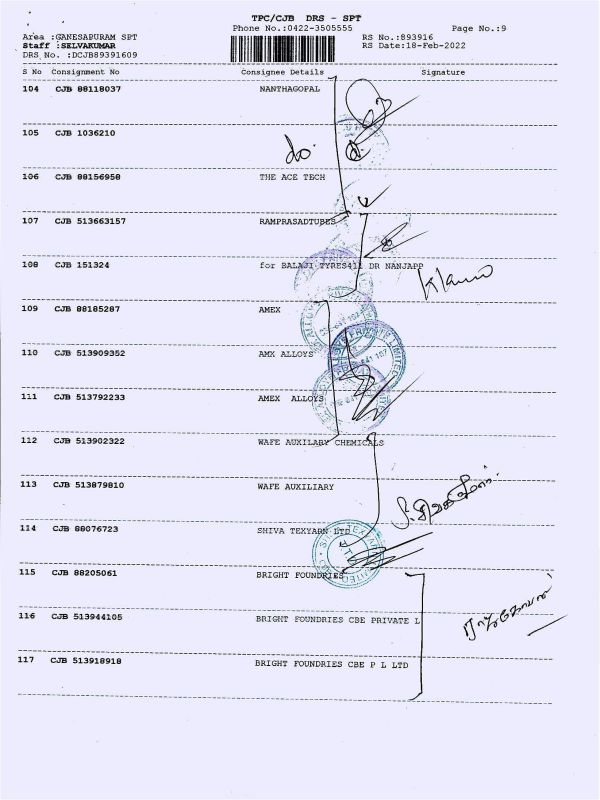 TPC/CJB DRS - SPT
Phone No.:0422-3505555 Page No.:9
Area :GANESAPURAM SPT RS No.:893916
Staff :SELVAKUMAR RS Date:18-Feb-2022
DRS No. :DCJB89391609
S No Consignment No Consignee Details Signature
104 CJB 88118037 NANTHAGOPAL
105 CJB 1036210
do
106 CJB 88156958 THE ACE TECH
107 CJB 513663157 RAMPRASADTUBES
108 CJB 151324 for BALAJI TYRES411 DR NANJAPP
109 CJB 88185287 AMEX
110 CJB 513909352 AMX ALLOYS
111 CJB 513792233 AMEX ALLOYS
112 CJB 513902322 WAFE AUXILARY CHEMICALS
113 CJB 513879810 WAFE AUXILIARY
114 CJB 88076723 SHIVA TEXYARN LTD
115 CJB 88205061 BRIGHT FOUNDRIES
116 CJB 513944105 BRIGHT FOUNDRIES CBE PRIVATE L
117 CJB 513918918 BRIGHT FOUNDRIES CBE P L LTD